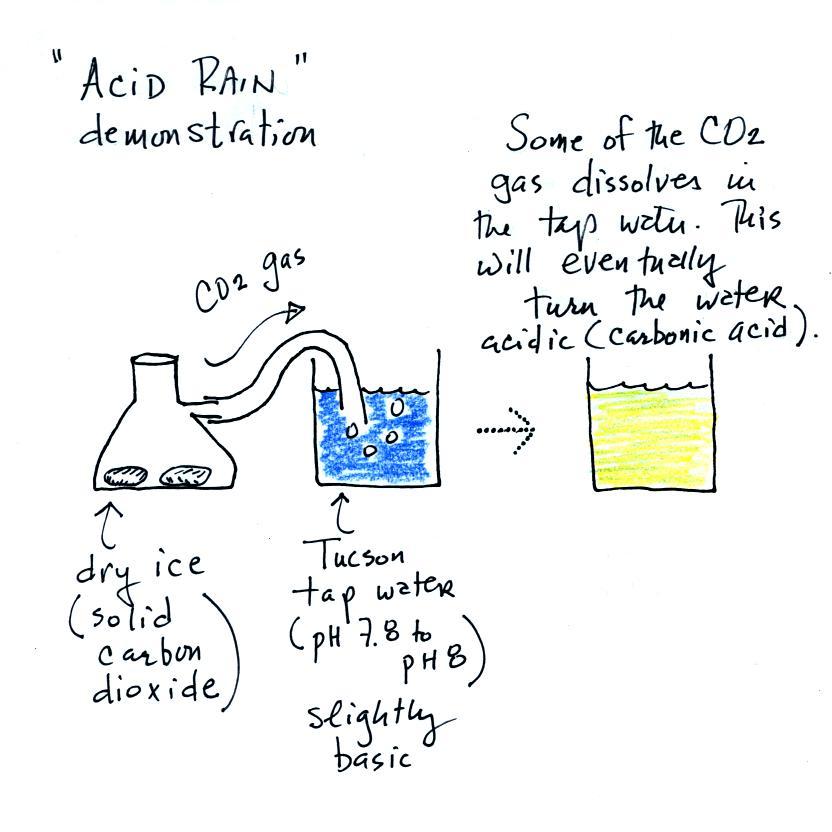 "ACID RAIN"
demonstration
Some of the CO2
gas dissolves in
the tap water. This
will eventually
turn the water
acidic (carbonic acid).
CO2 gas
dry ice
(solid
carbon
dioxide)
Tucson
tap water
(pH 7.8 to
pH 8)
slightly
basic